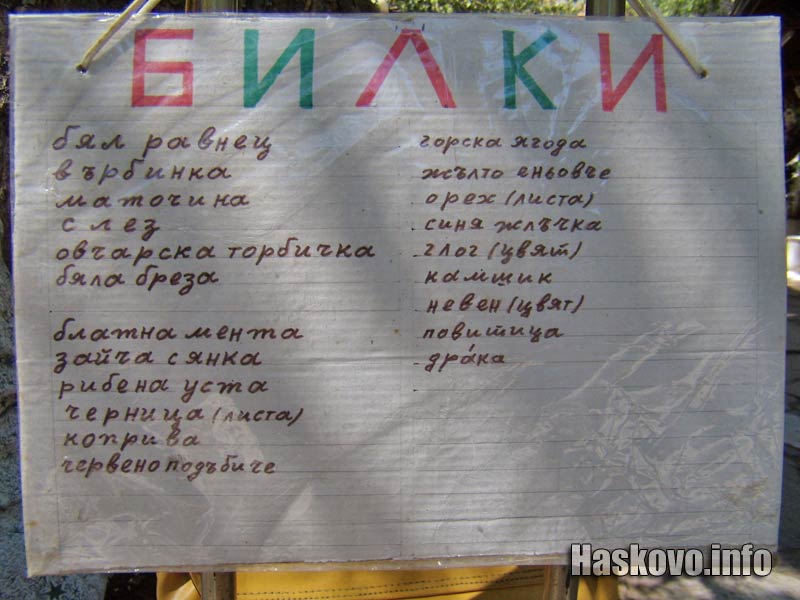 БИЛКИ
бял равнец
върбинка
маточина
слез
овчарска торбичка
бяла бреза
блатна мента
зайча сянка
рибена уста
черница (листа)
коприва
червено подъбиче
горска ягода
жълто еньовче
орех (листа)
синя жлъчка
глог (цвят)
камшик
невен (цвят)
повитица
дра́ка
Haskovo.info